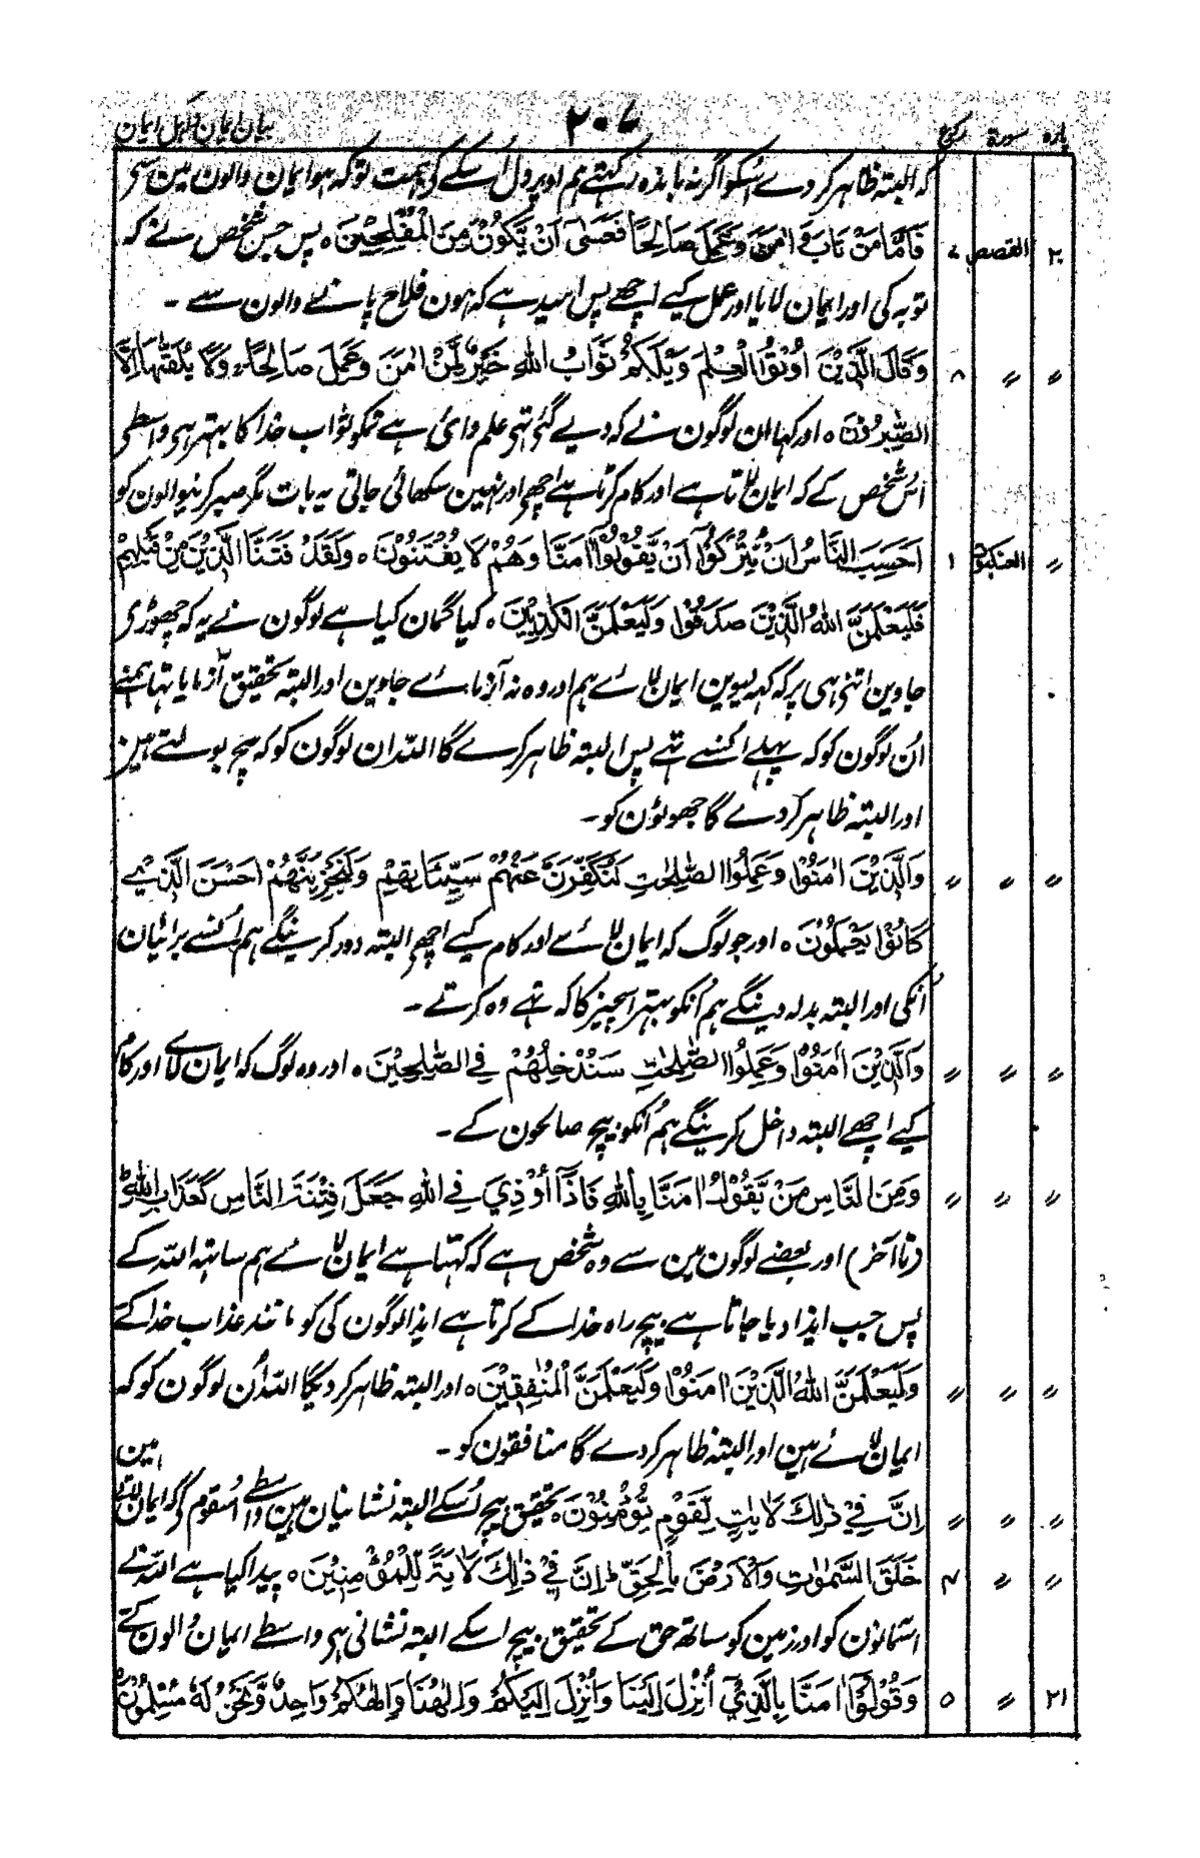 پارہ سورۃ رکوع ۲۰۷ بیان ایمان و اہل ایمان
کہ البتہ ظاہر کردے اسکو اگر نہ باندہ رکہتے ہم اوپر دل اُسکے کے ہمت تو کہ ہو ایمان والون مین سے
۲۰ القصص ۷ فَاَمَّا مَنْ تَابَ وَ اٰمَنَ وَعَمِلَ صَالِحًا فَعَسٰٓى اَنْ يَّكُوْنَ مِنَ الْمُفْلِحِيْنَ ہ پس جس شخص نے کہ
توبہ کی اور ایمان لایا اور عمل کیے اچھے پس امید ہے کہ ہون فلاح پانے والون سے ۔
〃 〃 ۸ وَقَالَ الَّذِيْنَ اُوْتُوا الْعِلْمَ وَيْلَكُمْ ثَوَابُ اللّٰهِ خَيْرٌ لِّمَنْ اٰمَنَ وَعَمِلَ صَالِحًا وَلَا يُلَقّٰىهَا اِلَّا
الصّٰبِرُوْنَ ہ اور کہا ان لوگون نے کہ دیے گئے تھے علم وائ ہے تمکو ثواب خدا کا بہتر ہی واسطے
اُس شخص کے کہ ایمان لاتا ہے اور کام کرتا ہے اچھے اور نہین سکھائی جاتی یہ بات مگر صبر کرنیوالون کو
〃 العنکبوت ۱ اَحَسِبَ النَّاسُ اَنْ يُّتْرَكُوْٓا اَنْ يَّقُوْلُوْٓا اٰمَنَّا وَهُمْ لَا يُفْتَنُوْنَ ہ وَلَقَدْ فَتَنَّا الَّذِيْنَ مِنْ قَبْلِهِمْ
فَلَيَعْلَمَنَّ اللّٰهُ الَّذِيْنَ صَدَقُوْا وَلَيَعْلَمَنَّ الْكٰذِبِيْنَ ہ کیا گمان کیا ہے لوگون نے یہ کہ چھوڑی
جاوین اتنی ہی پر کہ کہہ لیوین ایمان لائے ہم اور وہ نہ آزمائے جاوین اور البتہ تحقیق آزمایا تہا ہمنے
اُن لوگون کو کہ پہلے اُنسے تھے پس البتہ ظاہر کرے گا اللہ ان لوگون کو کہ سچ بولتے ہین
اور البتہ ظاہر کردے گا جھوٹون کو ۔
〃 〃 〃 وَالَّذِيْنَ اٰمَنُوْا وَعَمِلُوا الصّٰلِحٰتِ لَنُكَفِّرَنَّ عَنْهُمْ سَيِّئَاتِهِمْ وَلَنَجْزِيَنَّهُمْ اَحْسَنَ الَّذِيْ
كَانُوْا يَعْمَلُوْنَ ہ اور جو لوگ کہ ایمان لائے اور کام کیے اچھے البتہ دور کرینگے ہم اُنسے برائیان
اُنکی اور البتہ بدلہ دینگے ہم اُنکو بہتر اسچیز کا کہ تھے وہ کرتے ۔
〃 〃 〃 وَالَّذِيْنَ اٰمَنُوْا وَعَمِلُوا الصّٰلِحٰتِ سَنُدْخِلُهُمْ فِي الصّٰلِحِيْنَ ہ اور وہ لوگ کہ ایمان لائے اور کام
کیے اچھے البتہ داخل کرینگے ہم اُنکو بیچ صالحون کے ۔
〃 〃 〃 وَمِنَ النَّاسِ مَنْ يَّقُوْلُ اٰمَنَّا بِاللّٰهِ فَاِذَآ اُوْذِيَ فِي اللّٰهِ جَعَلَ فِتْنَةَ النَّاسِ كَعَذَابِ اللّٰهِ ؕ
(تا آخر) اور بعضے لوگون مین سے وہ شخص ہے کہ کہتا ہے ایمان لائے ہم ساتہہ اللہ کے
پس جب ایذا دیا جاتا ہے بیچ راہ خدا کے کرتا ہے ایذا لوگون کی کو مانند عذاب خدا کے
〃 〃 〃 وَلَيَعْلَمَنَّ اللّٰهُ الَّذِيْنَ اٰمَنُوْا وَلَيَعْلَمَنَّ الْمُنٰفِقِيْنَ ہ اور البتہ ظاہر کردیگا اللہ اُن لوگون کو کہ
ایمان لائے ہین اور البتہ ظاہر کردے گا منافقون کو ۔ ہین
〃 〃 〃 اِنَّ فِيْ ذٰلِكَ لَاٰيٰتٍ لِّقَوْمٍ يُّؤْمِنُوْنَ ہ تحقیق بیچ اُسکے البتہ نشانیان ہین واسطے اُسقوم کے کہ ایمان لاتے
〃 〃 ۴ خَلَقَ السَّمٰوٰتِ وَالْاَرْضَ بِالْحَقِّ ؕ اِنَّ فِيْ ذٰلِكَ لَاٰيَةً لِّلْمُؤْمِنِيْنَ ہ پیدا کیا ہے اللہ نے
آسمانون کو اور زمین کو ساتھ حق کے تحقیق بیچ اسکے البتہ نشانی ہی واسطے ایمان والون کے
۲۱ 〃 ۵ وَقُوْلُوْٓا اٰمَنَّا بِالَّذِيْٓ اُنْزِلَ اِلَيْنَا وَاُنْزِلَ اِلَيْكُمْ وَاِلٰهُنَا وَاِلٰهُكُمْ وَاحِدٌ وَّنَحْنُ لَهٗ مُسْلِمُوْنَ